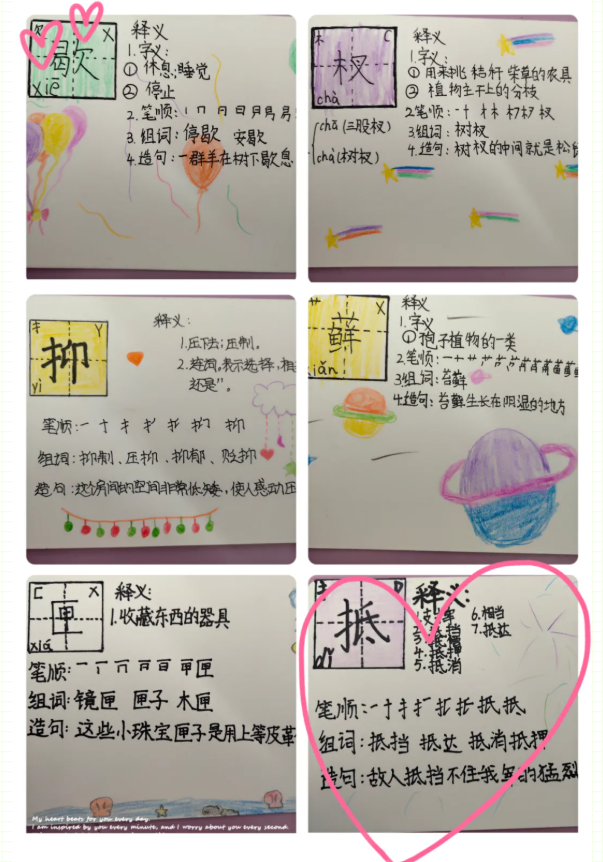 欠 X
歇
xiē
释义
1.字义:
① 休息;睡觉
② 停止
2.笔顺:
3.组词:停歇 安歇
4.造句:一群羊在树下歇息
木 C
杈
chā
释义
1.字义:
① 用来挑秸秆柴草的农具
② 植物主干上的分枝
2.笔顺:一十才木朳权杈
3.组词:树杈
4.造句:树杈的中间就是松
chā(三股杈)
chà(树杈)
扌 Y
抑
yì
释义:
1.压下去;压制。
2.连词。表示选择,相
还是”。
笔顺:一十扌
组词:抑制、压抑、抑郁、贬抑
造句:这个房间的空间非常低矮,使人感动压
艹 X
藓
iǎn
释义
1.字义
① 孢子植物的一类
2.笔顺:
3.组词:苔藓
4.造句:苔藓生长在阴湿的地方
C X
匣
xiá
释义:
1.收藏东西的器具
笔顺:
组词:镜匣 匣子 木匣
造句:这些小珠宝匣子是用上等皮革
My heart beats for you every day.
I am inspired by you every minute, and I worry about you every second.
扌 D
抵
dǐ
释义:
6.相当
7.抵达
5.抵消
笔顺:一十扌
组词:抵挡 抵达 抵消 抵押
造句:敌人抵挡不住我军的猛烈